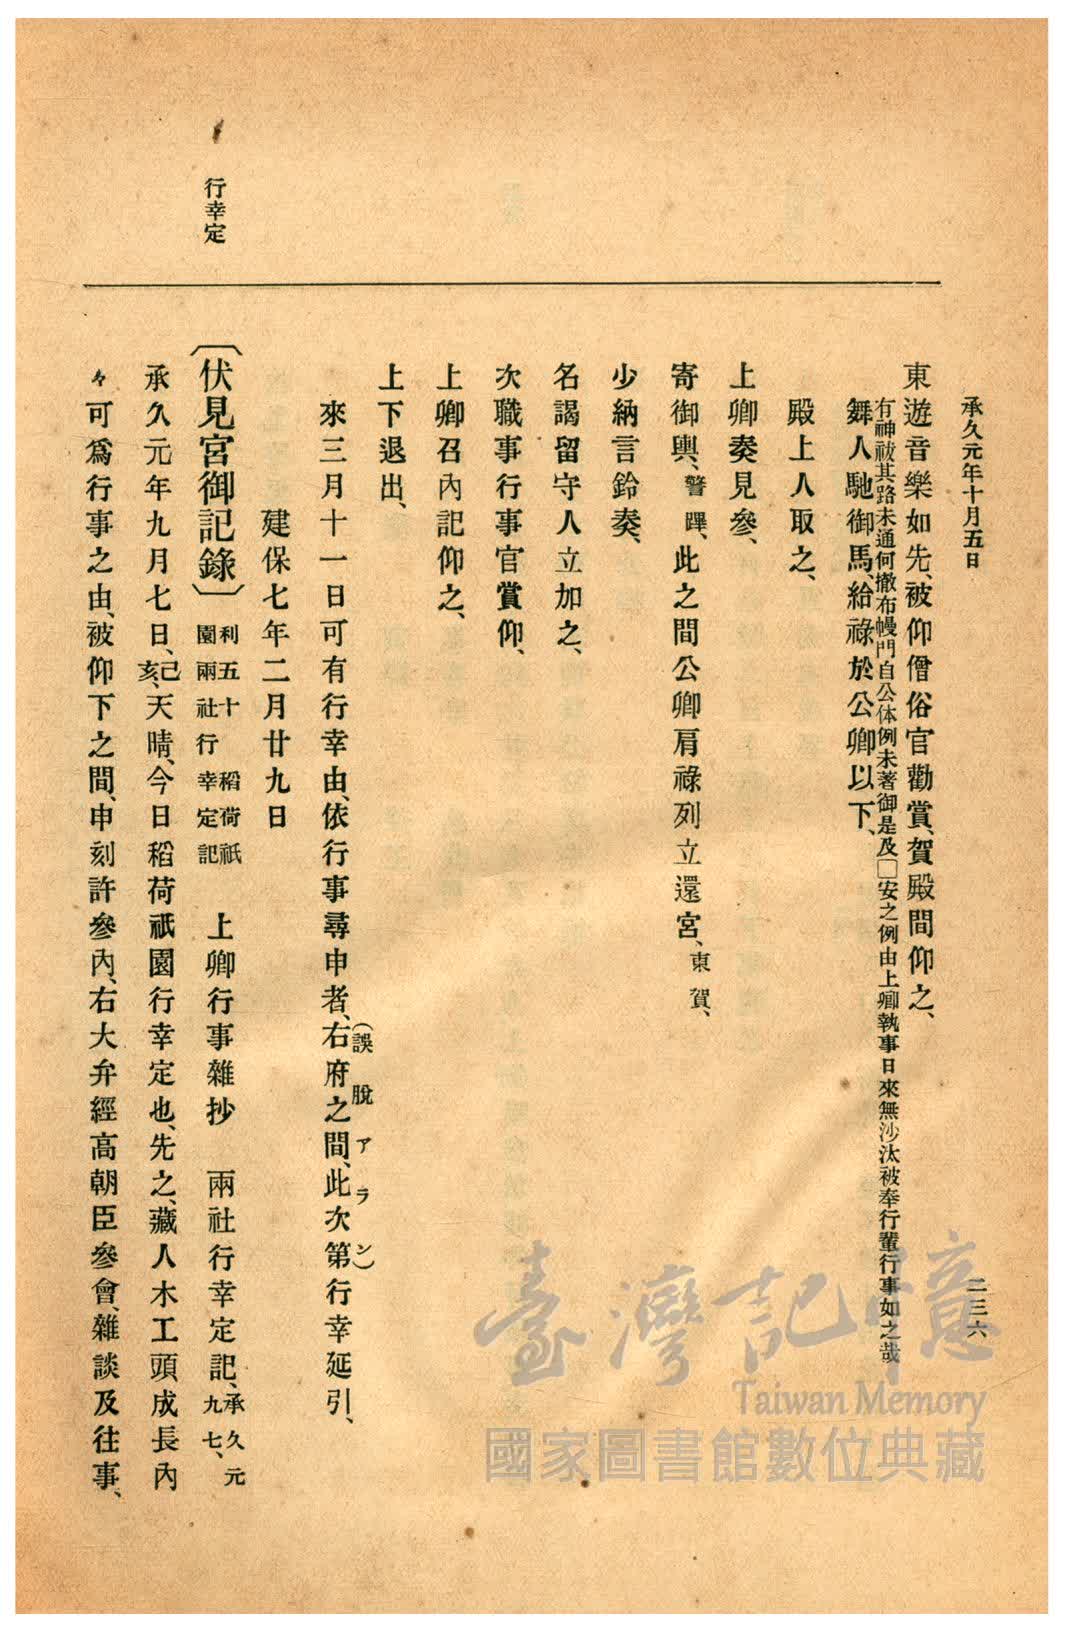 承久元年十月五日
二三六
東遊音樂如先、被仰僧俗官勸賞、賀殿間仰之、
有神祓其路未通何撤布幔門自公体例未著御是及□安之例由上卿執事日來無沙汰被奉行輩行事如之哉
舞人馳御馬、給祿於公卿以下、
殿上人取之、
上卿奏見參、
寄御輿、警蹕、此之間公卿肩祿列立還宮、東賀、
少納言鈴奏、
名謁留守人立加之、
次職事行事官賞仰、
上卿召內記仰之、
上下退出、
來三月十一日可有行幸由、依行事尋申者、右府之間、此次第行幸延引、
(誤脫アラン)
建保七年二月廿九日
行幸定
〔伏見宮御記錄〕利五十 稻荷祇園兩社行幸定記 上卿行事雜抄 兩社行幸定記、承久元九七、
承久元年九月七日、己亥、天晴、今日稻荷祇園行幸定也、先之、藏人木工頭成長內
々可爲行事之由、被仰下之間、申刻許參內、右大弁經高朝臣參會、雜談及往事、
臺灣記憶
Taiwan Memory
國家圖書館數位典藏